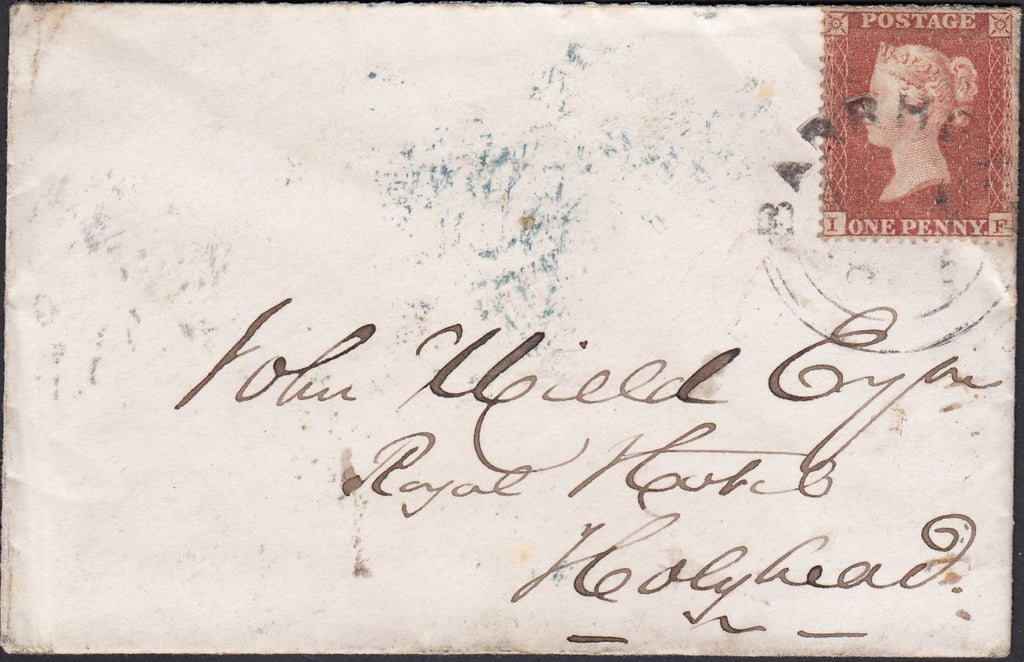 POSTAGE
BARRHE
I ONE PENNY F
John Wield Esqre
Royal Hotel
Holyhead.